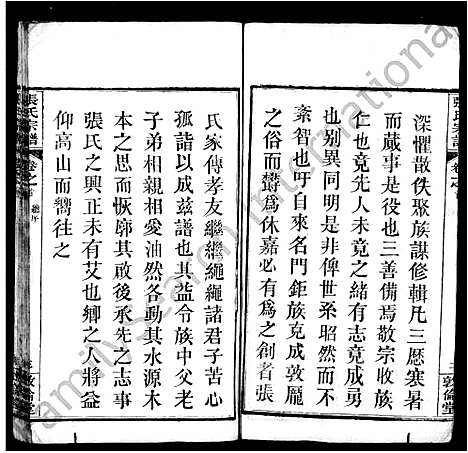 深懼散佚聚族謀修輯凡三歷寒暑
而蕆事是也三善備焉敬宗收族
仁也竟先人未竟之緒有志竟成勇
也別異同明是非俾世系昭然而不
紊智也自來名門鉅族克成敦龐
之俗而欝為休嘉必有為之創者張
氏家傳孝友繼繼繩繩諸君子苦心
孤詣以成兹譜也其益令族中父老
子弟相親相愛油然各動其水源木
本之思而恢廓其啟後承先之志事
張氏之興正未有艾也卿之人將益
仰高山而嚮往之
張氏宗譜
卷之首
敦倫堂
張氏宗譜
卷之首
三
敦倫堂
familysearch international